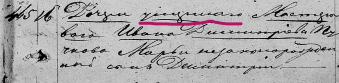 45 16 Дочери умершаго Мастро
ваго Ивана Димитрева Пу
чкова Марьи незаконорожден
ной сынъ Димитрий